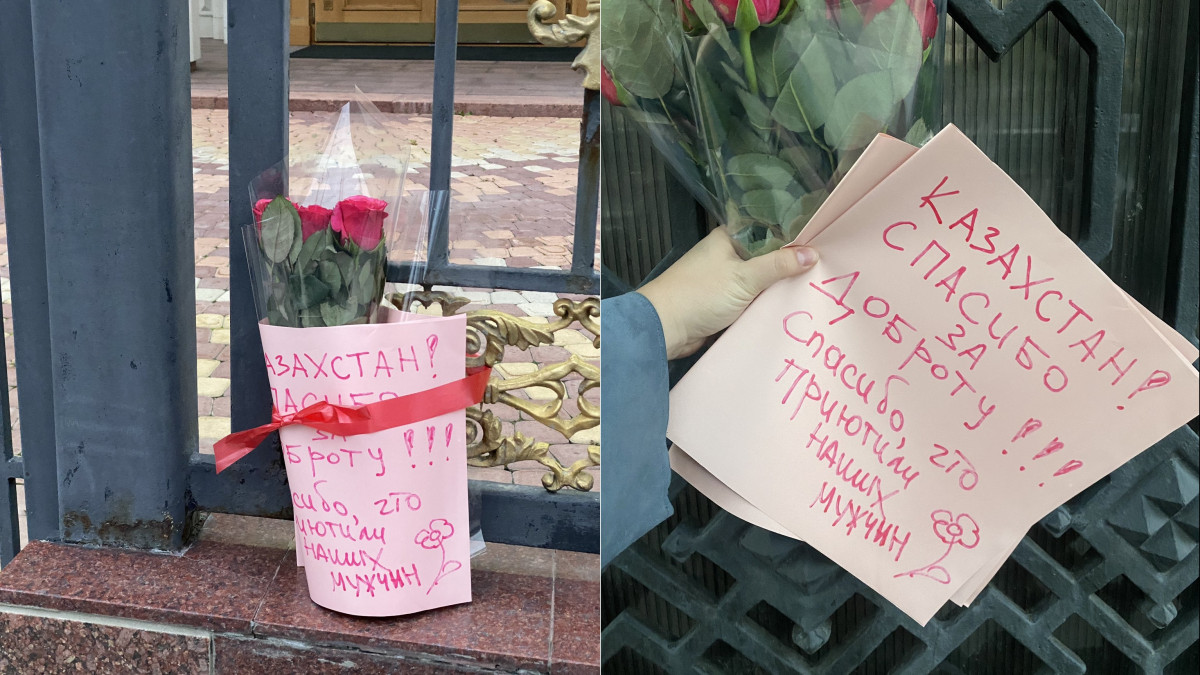 АЗАХСТАН!
ПАСИБО
ЗА
БРОТУ !!!
СИБО, ЧТО
ИЮТИЛИ
НАШИХ
МУЖЧИН
КАЗАХСТАН!
СПАСИБО
ЗА
ДОБРОТУ !!!
Спасибо, что
ПРИЮТИЛИ
НАШИХ
МУЖЧИН